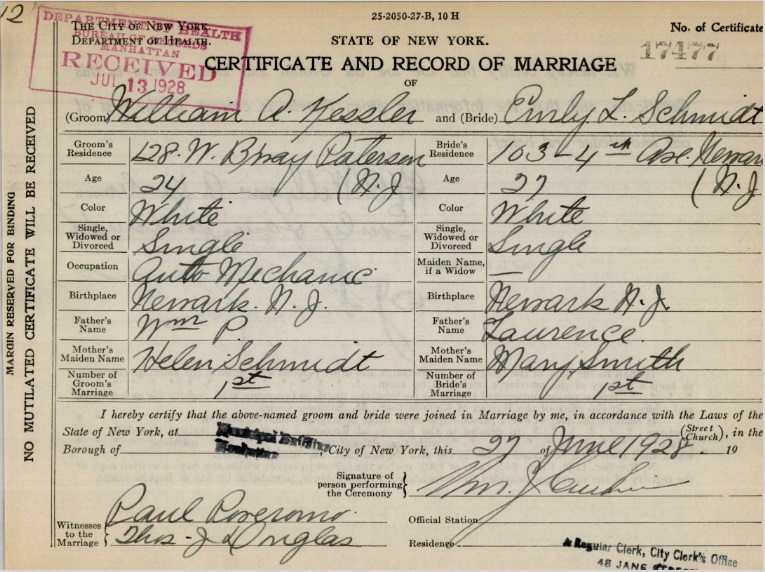 12
25-2050-27-B, 10 H
The City of New York.
Department of Health.
STATE OF NEW YORK.
No. of Certificate
17477
DEPARTMENT OF HEALTH
BUREAU OF RECORDS
MANHATTAN
RECEIVED
JUL 13 1928
CERTIFICATE AND RECORD OF MARRIAGE
OF
(Groom) William A. Kessler and (Bride) Emily L. Schmidt
Groom's Residence 128. W. Bway Paterson (N.J
Bride's Residence 103-4th Ave. Newark (N.J
Age 24
Age 27
Color White
Color White
Single, Widowed or Divorced Single
Single, Widowed or Divorced Single
Occupation Auto Mechanic
Maiden Name, if a Widow —
Birthplace Newark. N.J.
Birthplace Newark N.J.
Father's Name Wm P.
Father's Name Laurence
Mother's Maiden Name Helen Schmidt
Mother's Maiden Name Mary Smith
Number of Groom's Marriage 1st
Number of Bride's Marriage 1st
I hereby certify that the above-named groom and bride were joined in Marriage by me, in accordance with the Laws of the
State of New York, at Municipal Building (Street Church), in the
Borough of Manhattan, City of New York, this 27 of June 1928. 19
Signature of person performing the Ceremony Wm. J.
Witnesses to the Marriage Paul
Thos. J Douglas
Official Station
Residence
A Regular Clerk, City Clerk's Office
48 JANE STREET
MARGIN RESERVED FOR BINDING
NO MUTILATED CERTIFICATE WILL BE RECEIVED